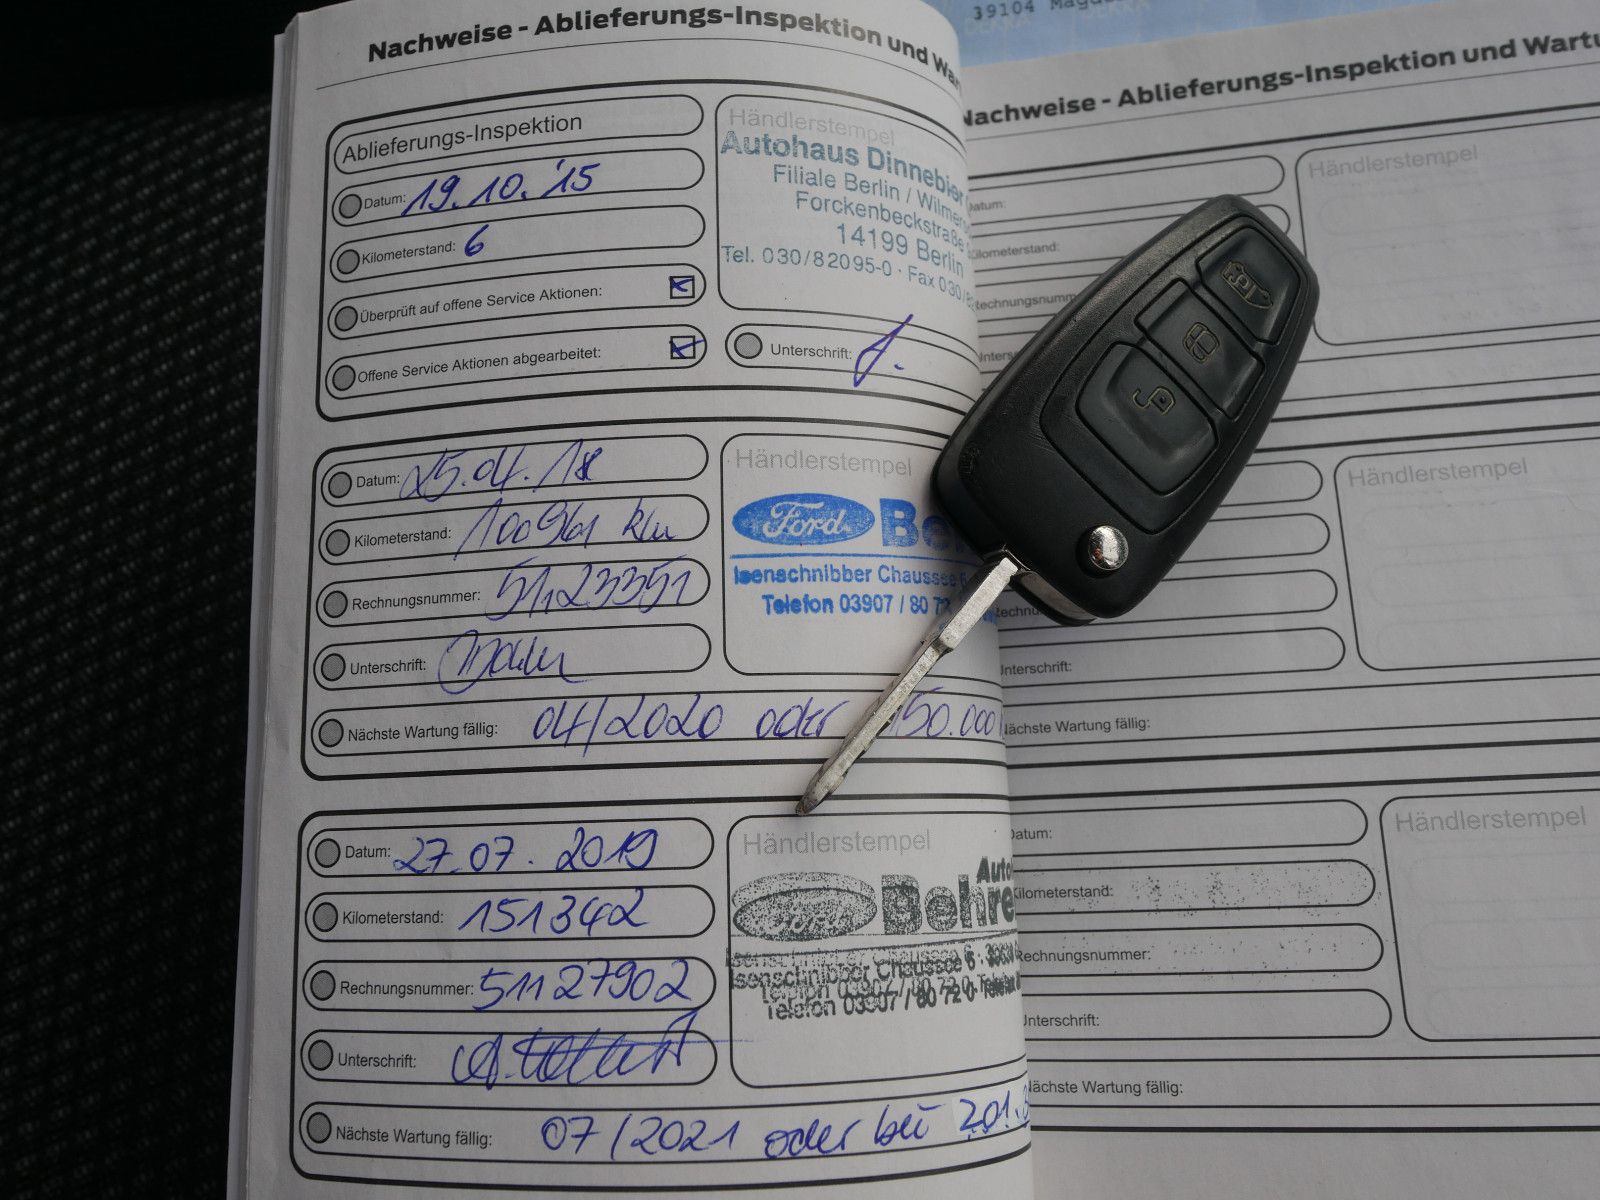 39104
Nachweise - Ablieferungs-Inspektion und
Ablieferungs-Inspektion
Datum: 19.10.'15
Kilometerstand: 6
Überprüft auf offene Service Aktionen:
Offene Service Aktionen abgearbeitet:
Händlerstempel
Autohaus Dinnebier
Filiale Berlin / Wilmers
Forckenbeckstraße
14199 Berlin
Tel. 030/82095-0 · Fax 030/8
Unterschrift:
Datum: 25.04.18
Kilometerstand: 100961 km
Rechnungsnummer: 51123351
Unterschrift:
Nächste Wartung fällig: 04/2020 oder 150.000
Händlerstempel
Ford
Isenschnibber Chaussee 6
Telefon 03907 / 80 72
Datum: 27.07.2019
Kilometerstand: 151342
Rechnungsnummer: 51127902
Unterschrift:
Nächste Wartung fällig: 07/2021 oder bei 201.3
Händlerstempel
Auto
Ford Behre
Isenschnibber Chaussee 6
Telefon 03907 / 80 72 0
Nachweise - Ablieferungs-Inspektion und Wartu
Händlerstempel
Datum:
Kilometerstand:
Rechnungsnumm
Händlerstempel
Unterschrift:
Nächste Wartung fällig:
Datum:
Kilometerstand:
Rechnungsnummer:
Unterschrift:
Nächste Wartung fällig:
Händlerstempel